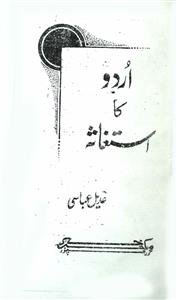 اُردو
کا
استغاثہ
عدیل عباسی